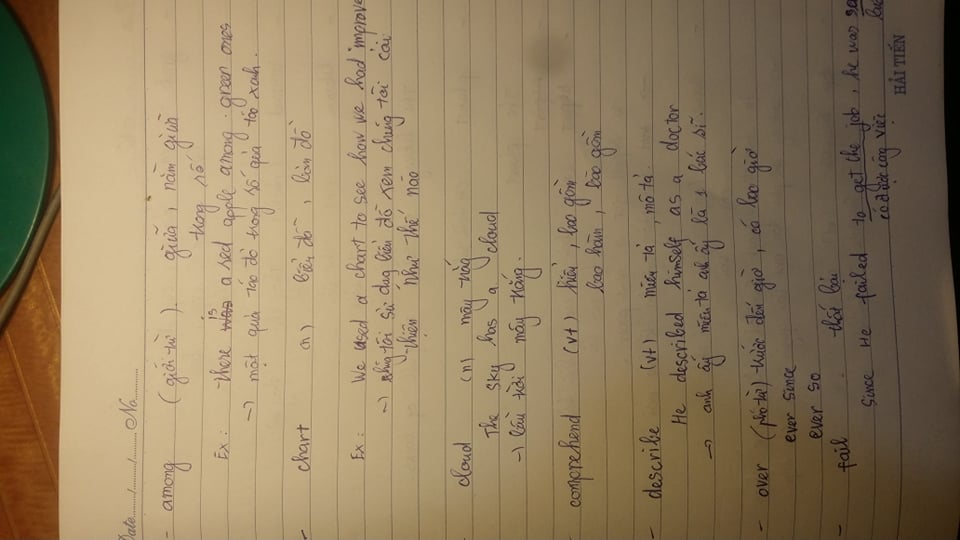 Date...../...../..... No.........
- among (giới từ). giữa, nằm giữa
trong số
Ex: - there is a red apple among green ones
→ một quả táo đỏ trong số quả táo xanh.
- chart (n) biểu đồ, bản đồ
Ex: We used a chart to see how we had improve
→ chúng tôi sử dụng biểu đồ xem chúng tôi cải
thiện như thế nào
cloud (n) mây
The sky has a cloud
→ bầu trời mây trắng.
comprehend (vt) hiểu, bao gồm
bao hàm, bao gồm
- describe (vt) miêu tả, mô tả
He described himself as a doctor
→ anh ấy miêu tả anh ấy là 1 bác sĩ.
- over (phó từ) giờ, có bao giờ
ever since
ever so
- fail thất bại
Since He failed to get the job, he was
có được công việc
HẢI TIẾN